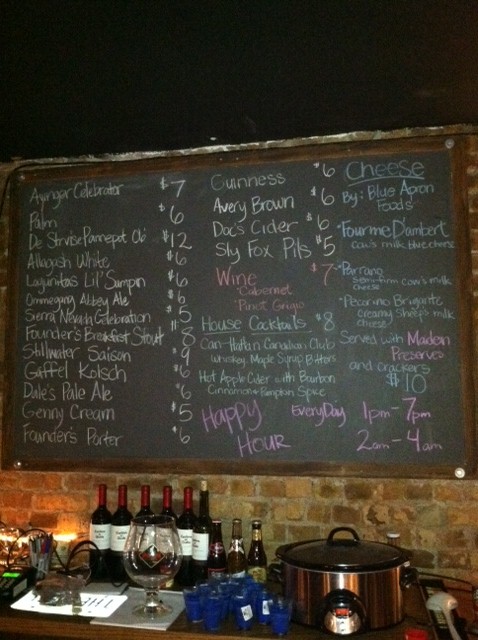 Ayinger Celebrator $7
Palm $6
De Struise Pannepot Old $12
Allagash White $6
Lagunitas Lil' Sumpin $6
Ommegang Abbey Ale $6
Sierra Nevada Celebration $5
Founder's Breakfast Stout $8
Stillwater Saison $9
Gaffel Kolsch $6
Dale's Pale Ale $6
Genny Cream $5
Founder's Porter $6
Guinness $6
Avery Brown $6
Doc's Cider $6
Sly Fox Pils $5
Wine $7
*Cabernet
*Pinot Grigio
House Cocktails $8
Can-Hattan Canadian Club
Whiskey, Maple Syrup, Bitters
Hot Apple Cider with Bourbon
Cinnamon + Pumpkin Spice
Cheese
By: Blue Apron
Foods
*Fourme D'ambert
cow's milk blue cheese
*Parrano
semi-firm cow's milk
cheese
*Pecorino Brigante
creamy sheep's milk
cheese
Served with Madein
Preserves
and crackers
$10
Happy
Hour
EveryDay 1pm-7pm
2am-4am